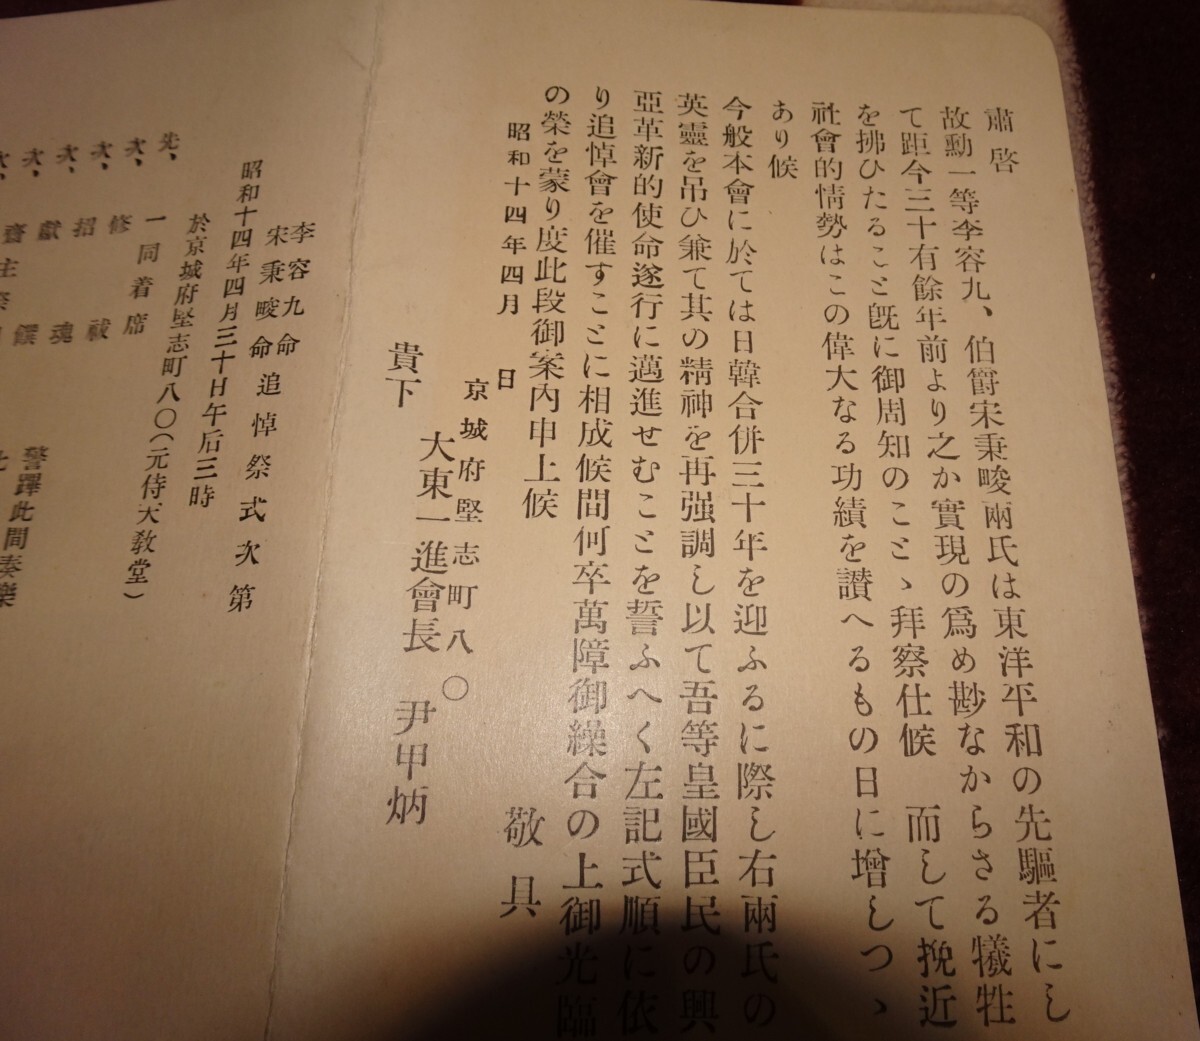 肅啓
故勳一等李容九、伯爵宋秉畯兩氏は東洋平和の先驅者にし
て距今三十有餘年前より之か實現の爲め尠なからさる犧牲
を拂ひたること旣に御周知のことゝ拜察仕候　而して挽近
社會的情勢はこの偉大なる功績を讃へるもの日に增しつゝ
あり候
今般本會に於ては日韓合併三十年を迎ふるに際し右兩氏の
英靈を吊ひ兼て其の精神を再强調し以て吾等皇國臣民の興
亞革新的使命遂行に邁進せむことを誓ふへく左記式順に依
り追悼會を催すことに相成候間何卒萬障御繰合の上御光臨
の榮を蒙り度此段御案內申上候
敬具
昭和十四年四月　日
京城府堅志町八〇
大東一進會長　尹甲炳
貴下
李容九
宋秉畯命追悼祭式次第
昭和十四年四月三十日午后三時
於京城府堅志町八〇(元侍天敎堂)
先、一同着席
次、修祓
次、招魂
次、獻饌
警蹕此間奏樂
次、齋主